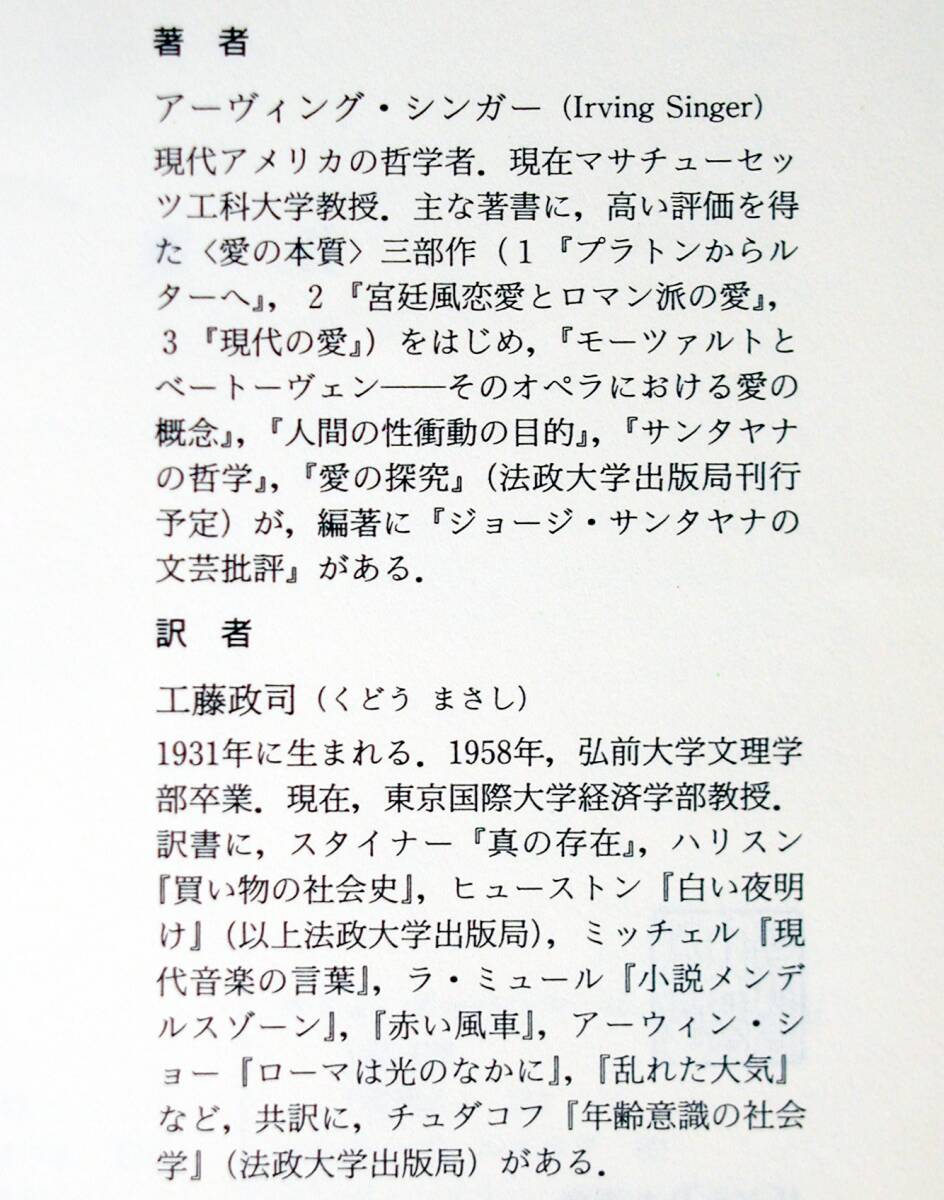 著　者
アーヴィング・シンガー（Irving Singer）
現代アメリカの哲学者．現在マサチューセッ
ツ工科大学教授．主な著書に，高い評価を得
た〈愛の本質〉三部作（1『プラトンからル
ターへ』，2『宮廷風恋愛とロマン派の愛』，
3『現代の愛』）をはじめ，『モーツァルトと
ベートーヴェン――そのオペラにおける愛の
概念』，『人間の性衝動の目的』，『サンタヤナ
の哲学』，『愛の探究』（法政大学出版局刊行
予定）が，編著に『ジョージ・サンタヤナの
文芸批評』がある．
訳　者
工藤政司（くどう まさし）
1931年に生まれる．1958年，弘前大学文理学
部卒業．現在，東京国際大学経済学部教授．
訳書に，スタイナー『真の存在』，ハリスン
『買い物の社会史』，ヒューストン『白い夜明
け』（以上法政大学出版局），ミッチェル『現
代音楽の言葉』，ラ・ミュール『小説メンデ
ルスゾーン』，『赤い風車』，アーウィン・シ
ョー『ローマは光のなかに』，『乱れた大気』
など，共訳に，チュダコフ『年齢意識の社会
学』（法政大学出版局）がある．